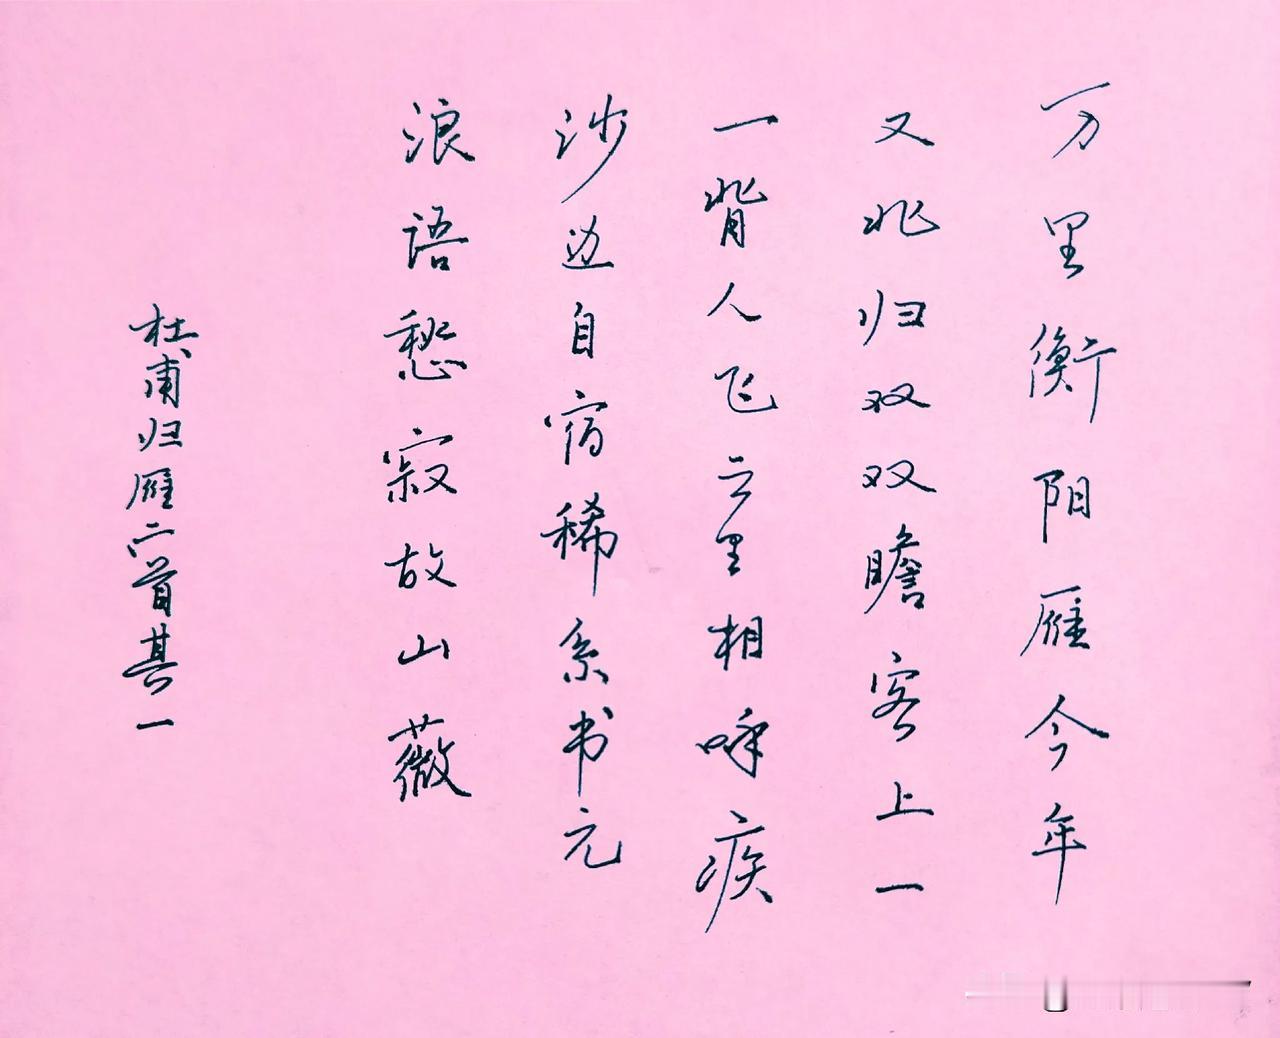 万里衡阳雁今年
又北归双双瞻客上一
一背人飞云里相呼疾
沙边自宿稀系书元
浪语愁寂故山薇
杜甫归雁二首其一